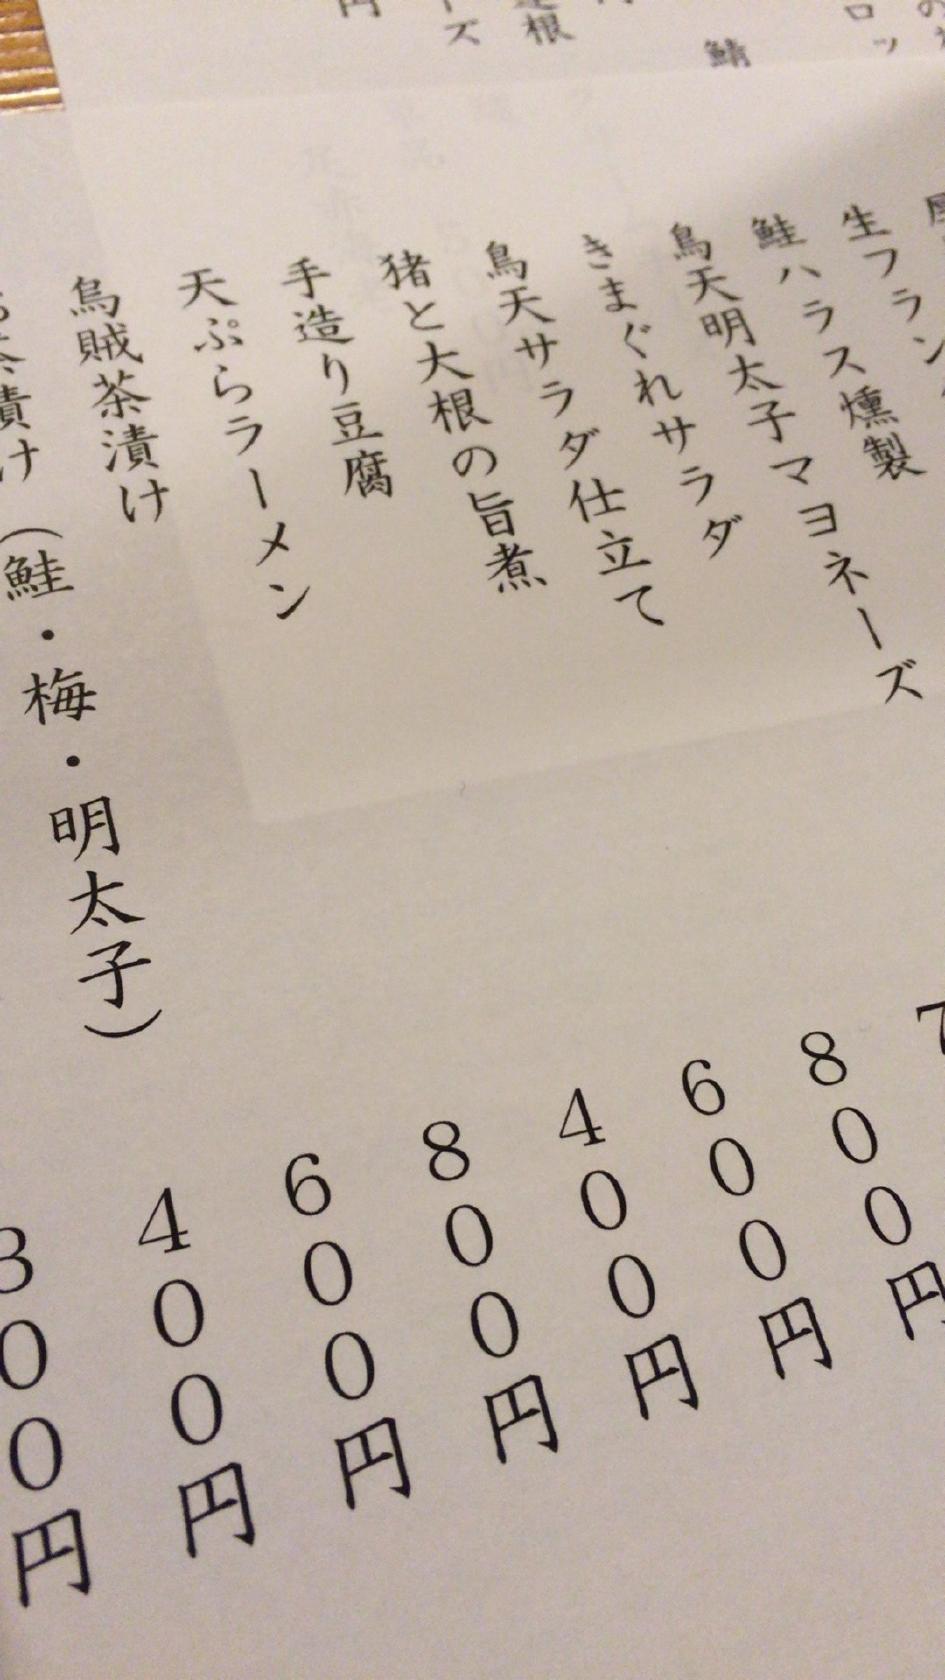 鯖
生フラン
鮭ハラス燻製
鳥天明太子マヨネーズ
きまぐれサラダ 7
鳥天サラダ仕立て 800円
猪と大根の旨煮 600円
手造り豆腐 400円
天ぷらラーメン 800円
烏賊茶漬け 600円
お茶漬け（鮭・梅・明太子） 400円
300円